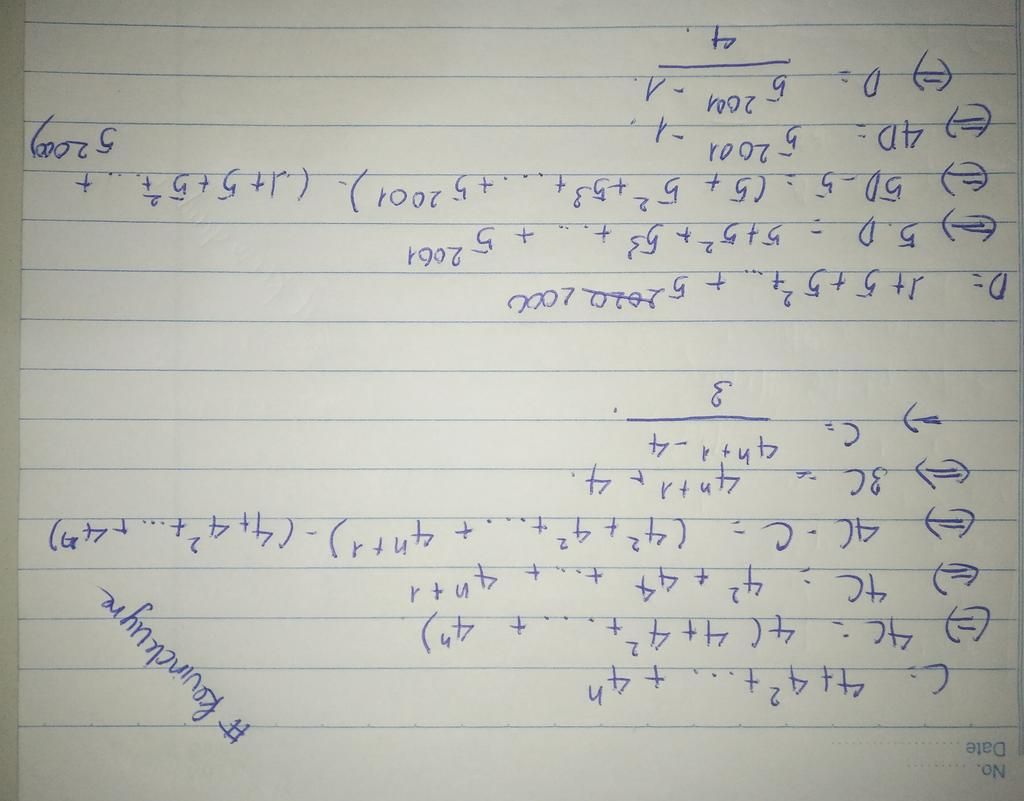 No. ..........
Date ..........
C = 4 + 4² + ... + 4ⁿ
(=) 4C = 4 ( 4 + 4² + ... + 4ⁿ)
(=) 4C = 4² + 4⁴ + ... + 4ⁿ⁺¹
(=) 4C - C = (4² + 4² + ... + 4ⁿ⁺¹) - (4 + 4² + ... + 4ⁿ)
(=) 3C = 4ⁿ⁺¹ + 4.
=) C = (4ⁿ⁺¹ - 4)/3.
D = 1 + 5 + 5² + ... + 5²⁰⁰⁰
(=) 5.D = 5 + 5² + 5³ + ... + 5²⁰⁰¹
(=) 5D - 5 = (5 + 5² + 5³ + ... + 5²⁰⁰¹) - (1 + 5 + 5² + ... +
5²⁰⁰⁰)
(=) 4D = 5²⁰⁰¹ - 1.
(=) D = (5²⁰⁰¹ - 1)/4.